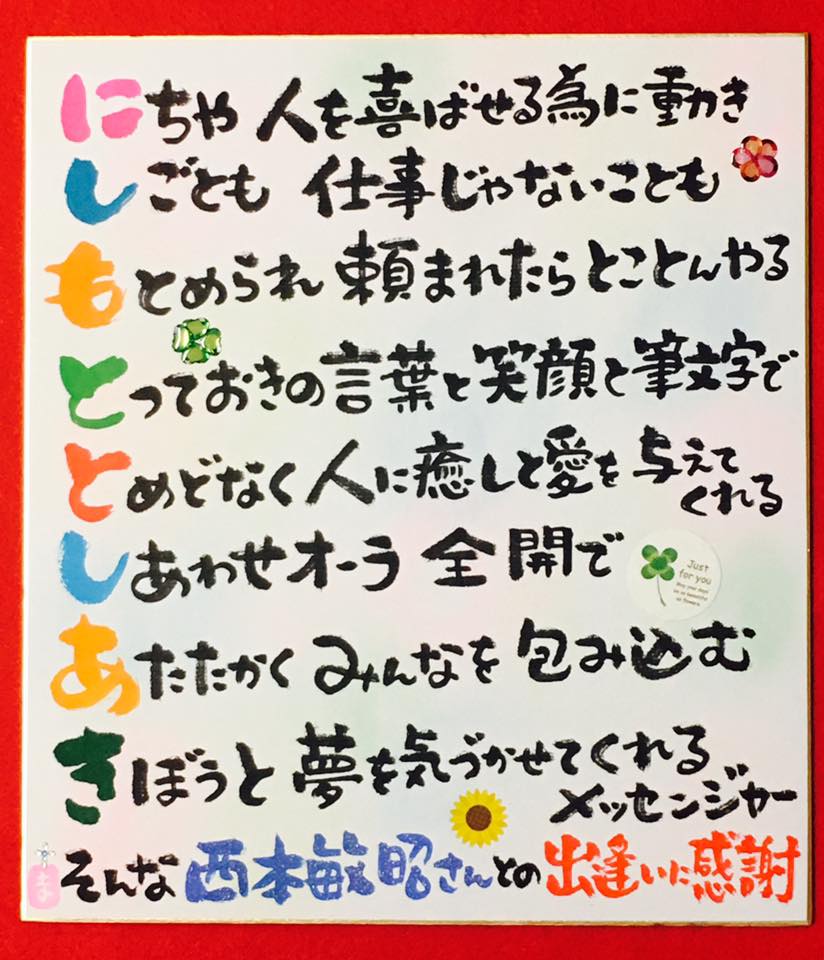 にちや 人を喜ばせる為に動き
しごとも 仕事じゃないことも
もとめられ 頼まれたらとことんやる
とっておきの言葉と笑顔と筆文字で
とめどなく人に癒しと愛を与えて
くれる
しあわせオーラ 全開で
Just
for you
May your days
be as beautiful
as flowers.
あたたかく みんなを 包み込む
きぼうと 夢を気づかせてくれる
メッセンジャー
そんな 西本敏昭さんとの 出逢いに感謝